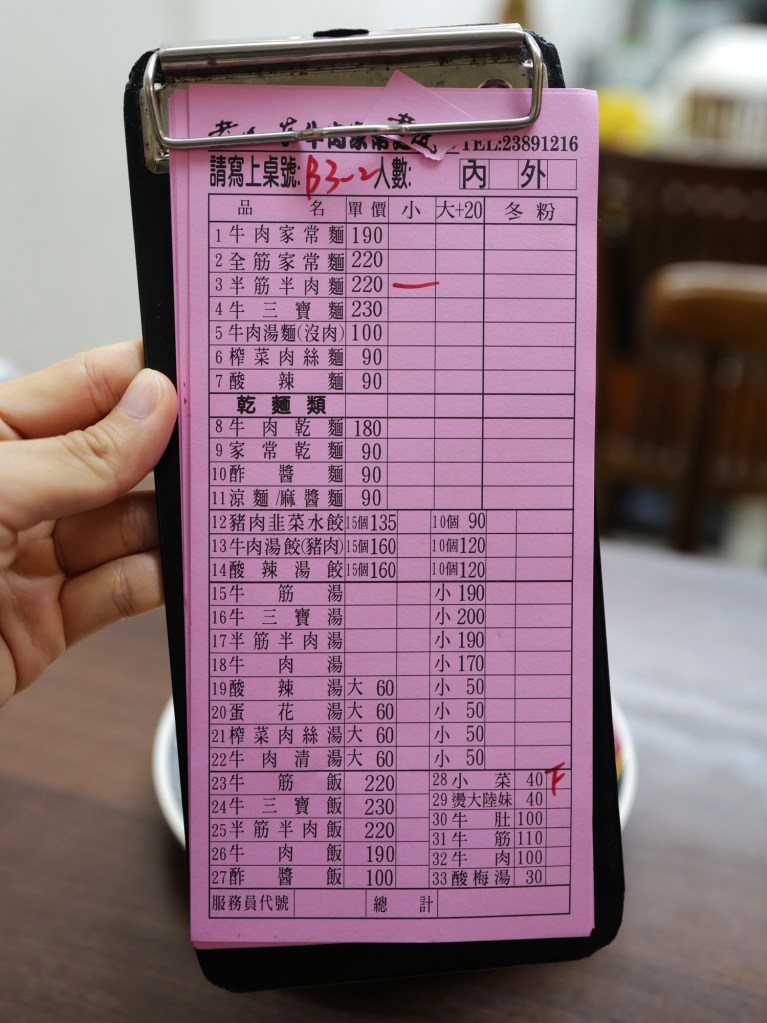 牛肉家常麵 TEL:23891216
請寫上桌號: B3-2 人數: 內 外
品名 單價 小 大+20 冬粉
1 牛肉家常麵 190
2 全筋家常麵 220
3 半筋半肉麵 220 一
4 牛三寶麵 230
5 牛肉湯麵(沒肉) 100
6 榨菜肉絲麵 90
7 酸辣麵 90
乾麵類
8 牛肉乾麵 180
9 家常乾麵 90
10 酢醬麵 90
11 涼麵/麻醬麵 90
12 豬肉韭菜水餃 15個 135 10個 90
13 牛肉湯餃(豬肉) 15個 160 10個 120
14 酸辣湯餃 15個 160 10個 120
15 牛筋湯 小 190
16 牛三寶湯 小 200
17 半筋半肉湯 小 190
18 牛肉湯 小 170
19 酸辣湯 大 60 小 50
20 蛋花湯 大 60 小 50
21 榨菜肉絲湯 大 60 小 50
22 牛肉清湯 大 60 小 50
23 牛筋飯 220 28 小菜 40
24 牛三寶飯 230 29 燙大陸妹 40
25 半筋半肉飯 220 30 牛肚 100
26 牛肉飯 190 31 牛筋 110
27 酢醬飯 100 32 牛肉 100
33 酸梅湯 30
服務員代號 總計